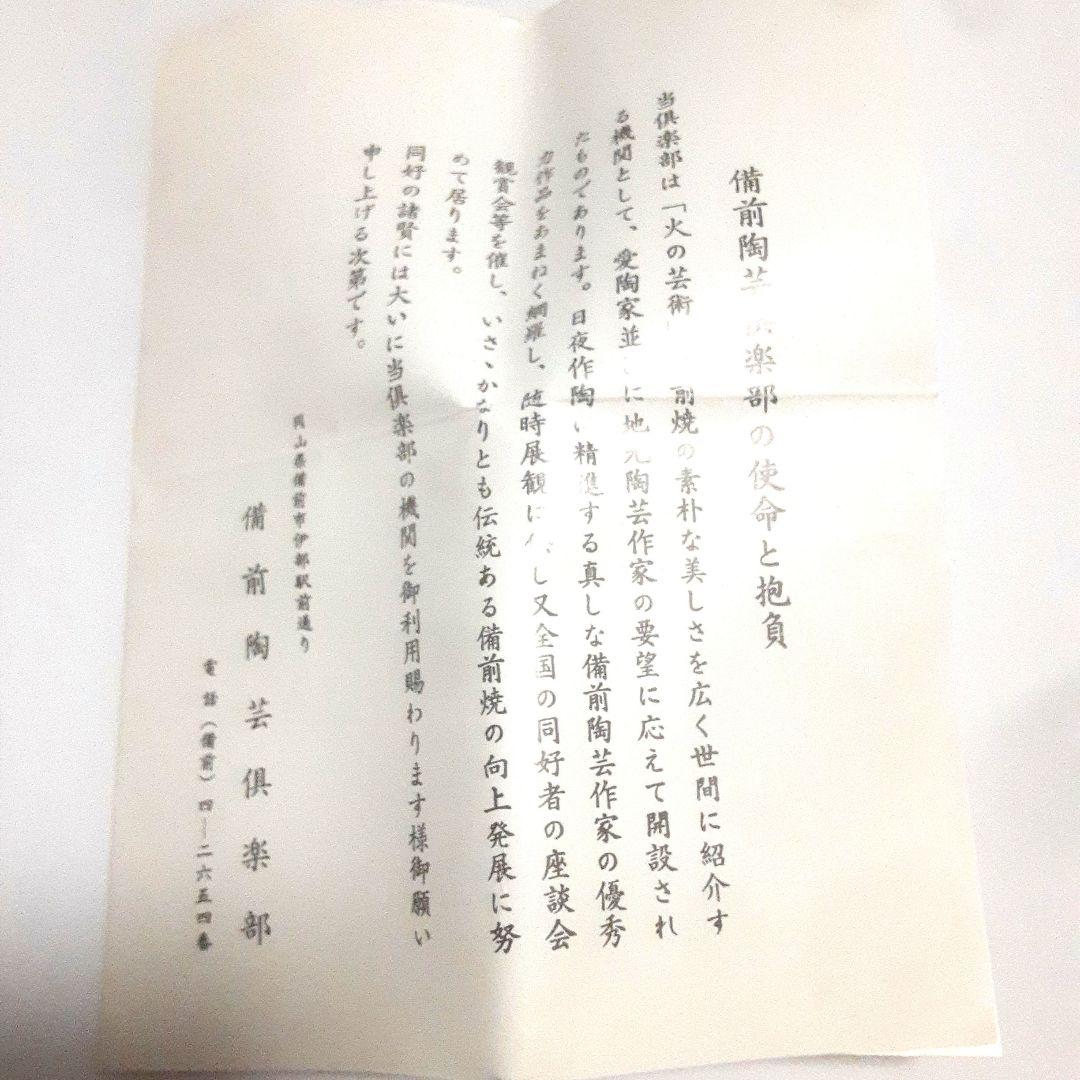 備前陶芸倶楽部の使命と抱負
当倶楽部は「火の芸術 前焼の素朴な美しさを広く世間に紹介す
る機関として、愛陶家並 に地元陶芸作家の要望に応えて開設され
たものであります。日夜作陶に精進する真しな備前陶芸作家の優秀
力作品をあまねく網羅し、随時展観に し又全国の同好者の座談会
観賞会等を催し、いさゝかなりとも伝統ある備前焼の向上発展に努
めて居ります。
同好の諸賢には大いに当倶楽部の機関を御利用賜わります様御願い
申し上げる次第です。
岡山県備前市伊部駅前通り
備前陶芸倶楽部
電話（備前）四―二六五四番